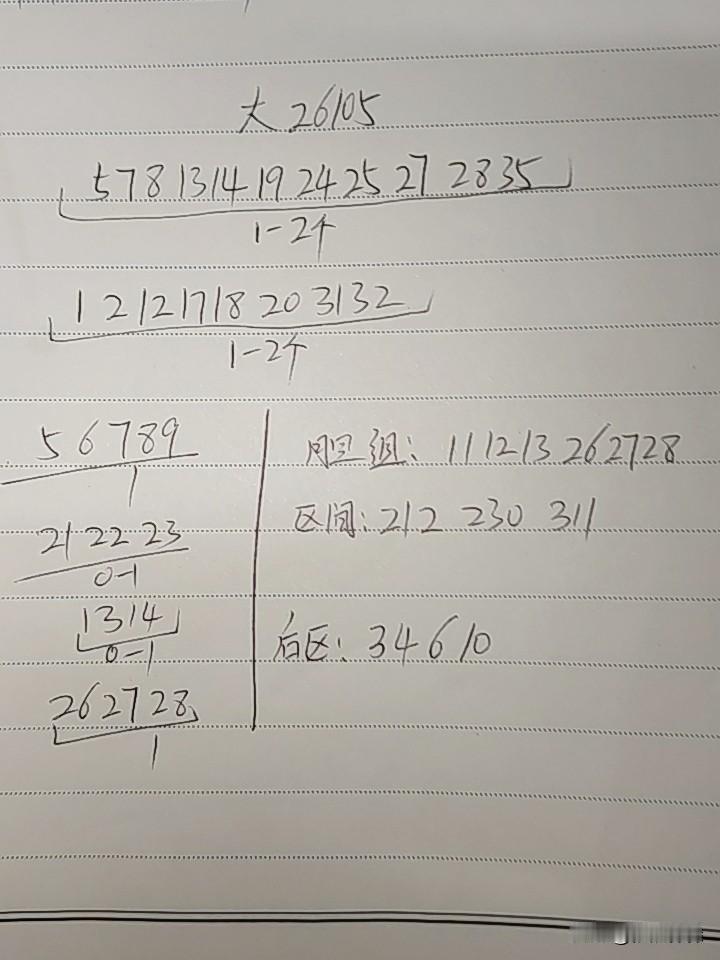 大 26105
5 7 8 13 14 19 24 25 27 28 35
1-2个
1 2 12 17 18 20 31 32
1-2个
5 6 7 8 9
1
21 22 23
0-1
13 14
0-1
26 27 28
1
胆组: 11 12 13 26 27 28
区间: 212 230 311
后区: 3 4 6 10